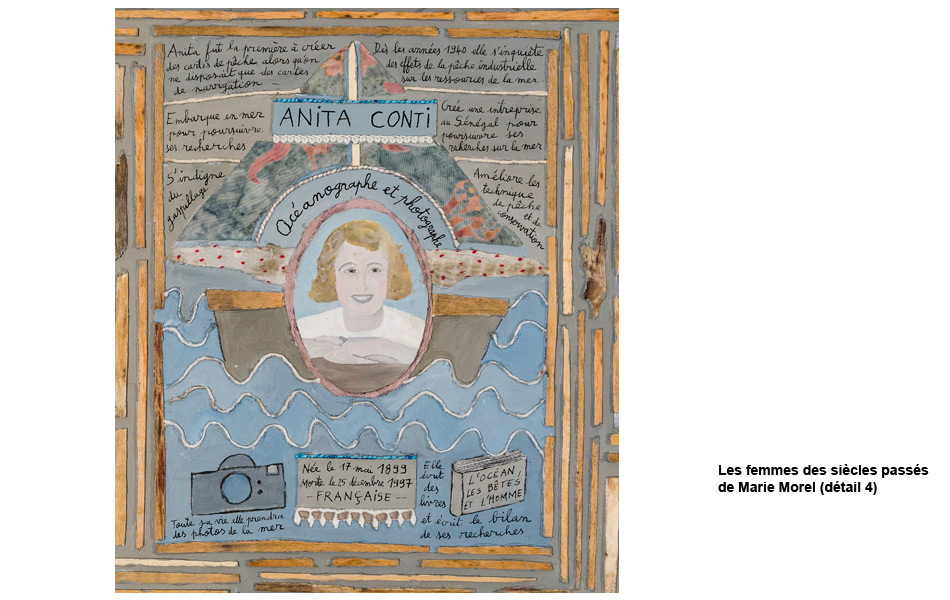 Anita fut la première à créer
des cartes de pêche alors qu'on
ne disposait que des cartes
de navigation
Dès les années 1940 elle s'inquiète
des effets de la pêche industrielle
sur les ressources de la mer
Embarque en mer
pour poursuivre
ses recherches
ANITA CONTI
Crée une entreprise
au Sénégal pour
poursuivre ses
recherches sur la mer
S'indigne
du
gaspillage
Océanographe et photographe
Améliore les
technique
de pêche
et de
conservation
Née le 17 mai 1899
Morte le 25 décembre 1997
- FRANÇAISE -
Elle
écrit
des
livres
L'OCÉAN,
LES BÊTES
ET L'HOMME
Toute sa vie elle prendra
des photos de la mer
et écrit le bilan
de ses recherches
Les femmes des siècles passés
de Marie Morel (détail 4)